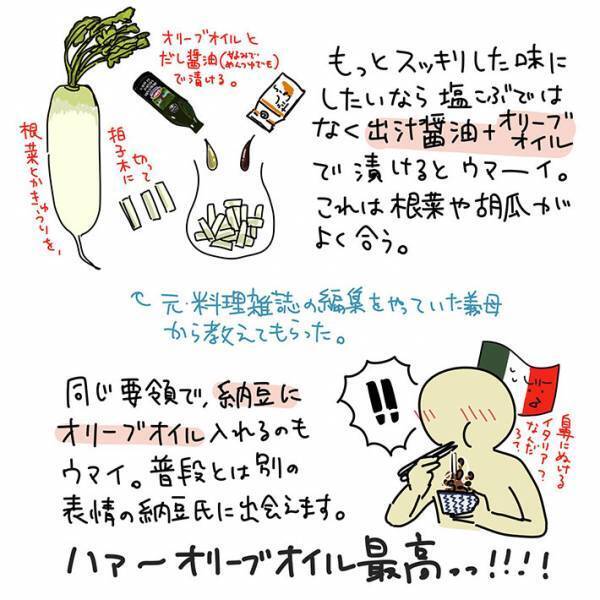 オリーブオイルと
だし醤油(なみでも めんつゆでも)
で漬ける。
根菜とかきゅうりを、
拍子木に
切って
もっとスッキリした味に
したいなら塩こぶでは
なく出汁醤油+オリーブオイル
で漬けるとウマーイ。
これは根菜や胡瓜が
よく合う。
元・料理雑誌の編集をやっていた義母
から教えてもらった。
同じ要領で、納豆に
オリーブオイル入れるのも
ウマイ。普段とは別の
表情の納豆氏に出会えます。
!!
鼻にぬける
イタリア?
なんだ
ろて
ハァ〜オリーブオイル最高っっ!!!!